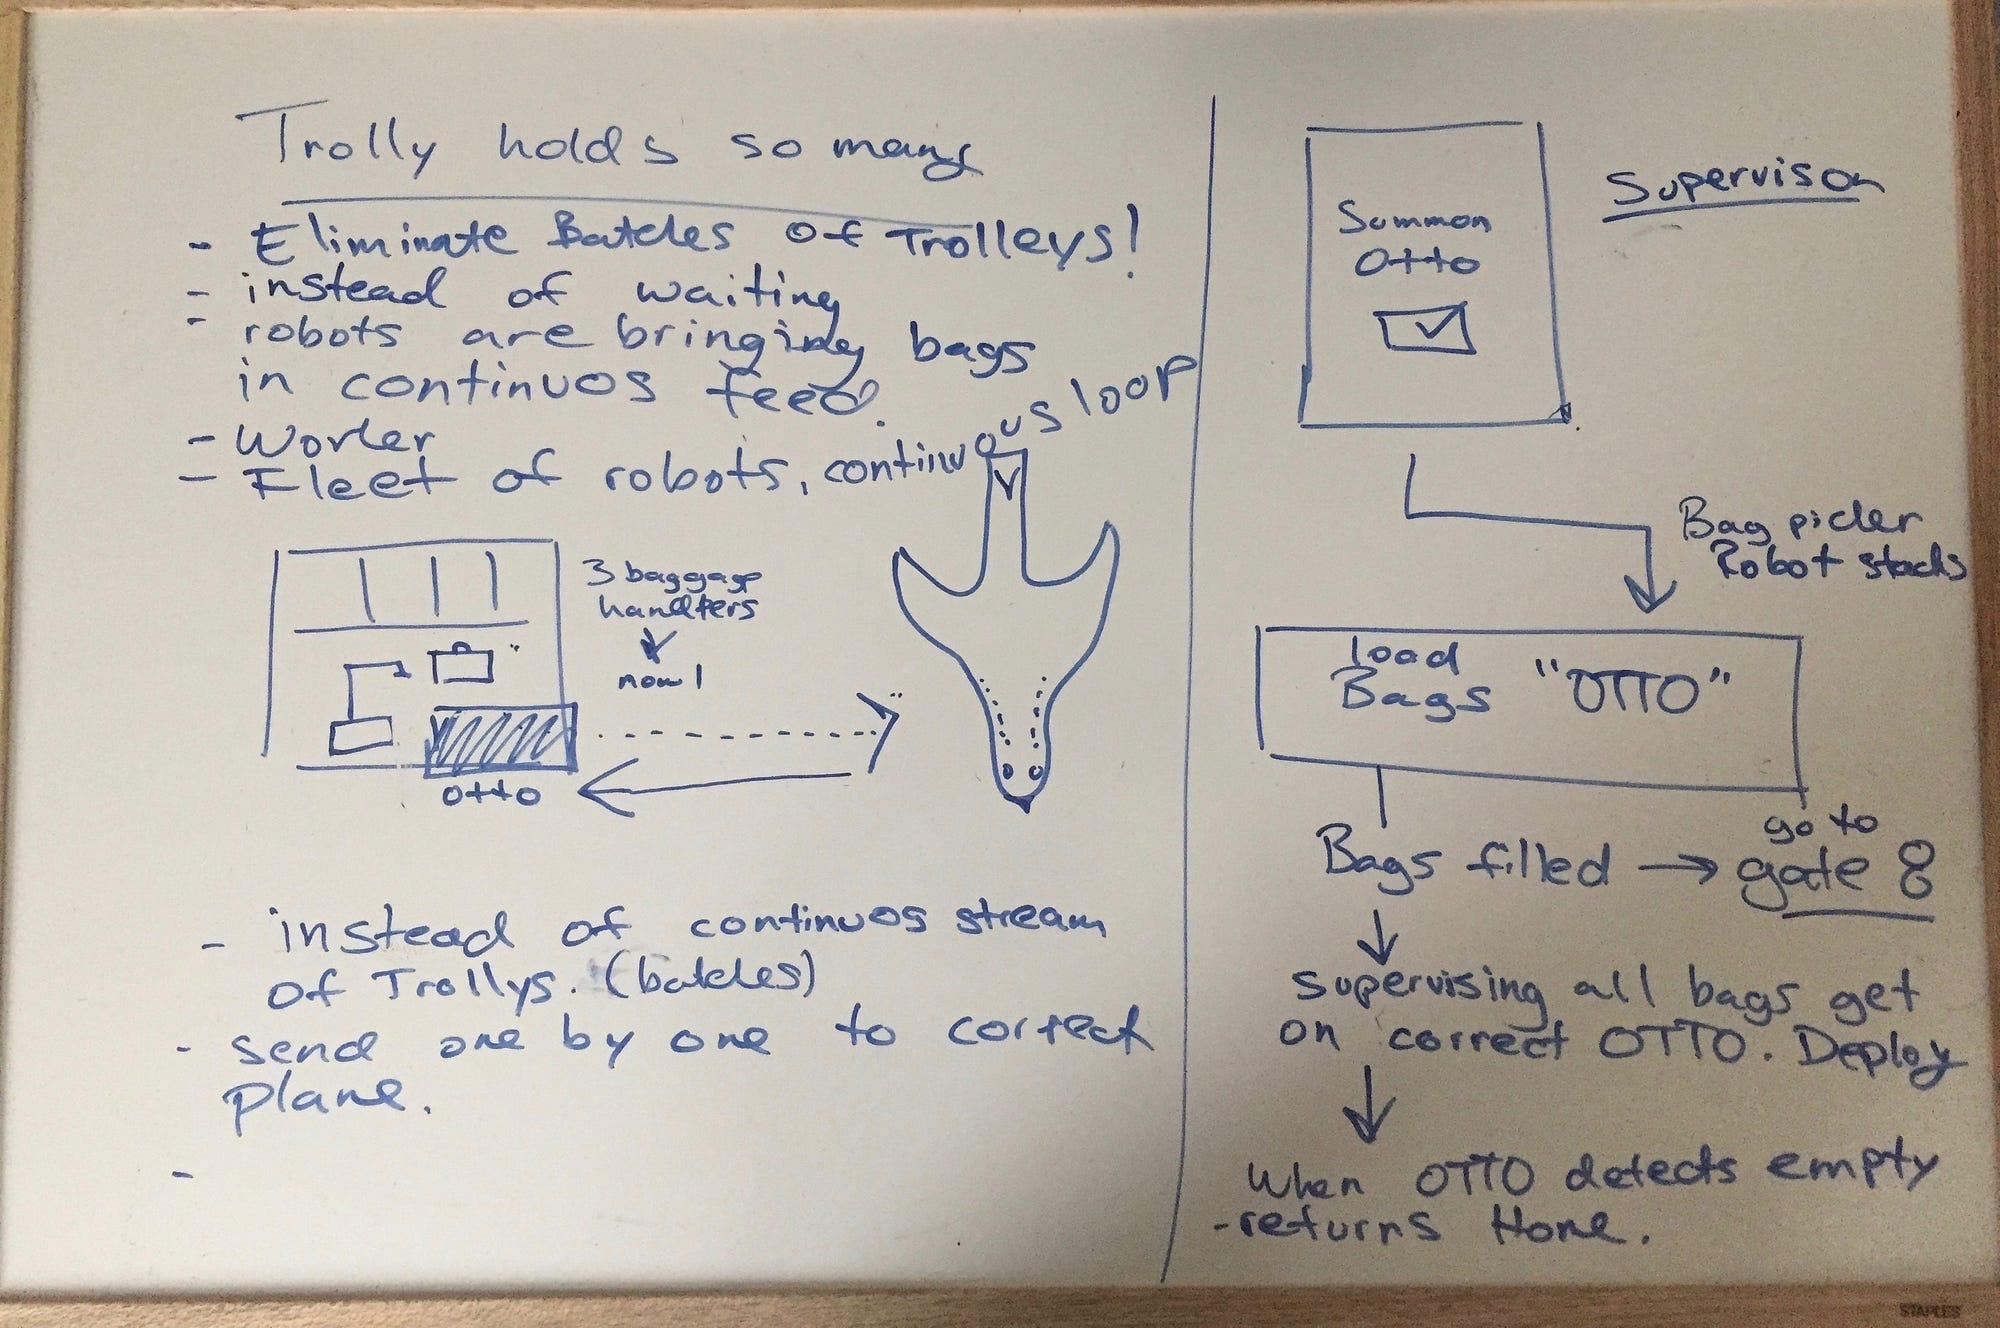 Trolly holds so many
- Eliminate Batches of Trolleys!
- instead of waiting
- robots are bringing bags
in continuos feed.
- Worker
- Fleet of robots, continuous loop
3 baggage
handlers
now 1
otto
- instead of continuos stream
of Trollys. (batches)
- send one by one to correct
plane.
-
Supervison
Summon
Otto
Bag picker
Robot stacks
load
Bags "OTTO"
Bags filled → go to
gate 8
supervising all bags get
on correct OTTO. Deploy
When OTTO detects empty
- returns Home.
STAPLES